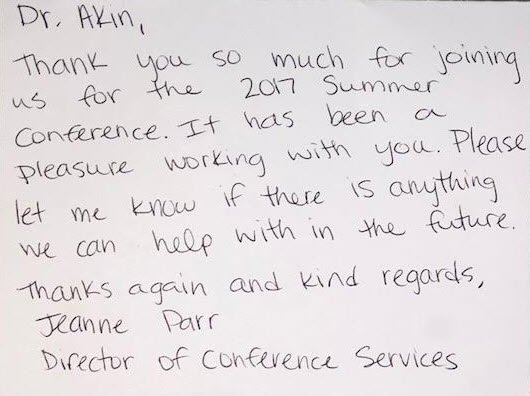 Dr. Akin,
Thank you so much for joining
us for the 2017 Summer
Conference. It has been a
pleasure working with you. Please
let me know if there is anything
we can help with in the future.
Thanks again and kind regards,
Jeanne Parr
Director of Conference Services